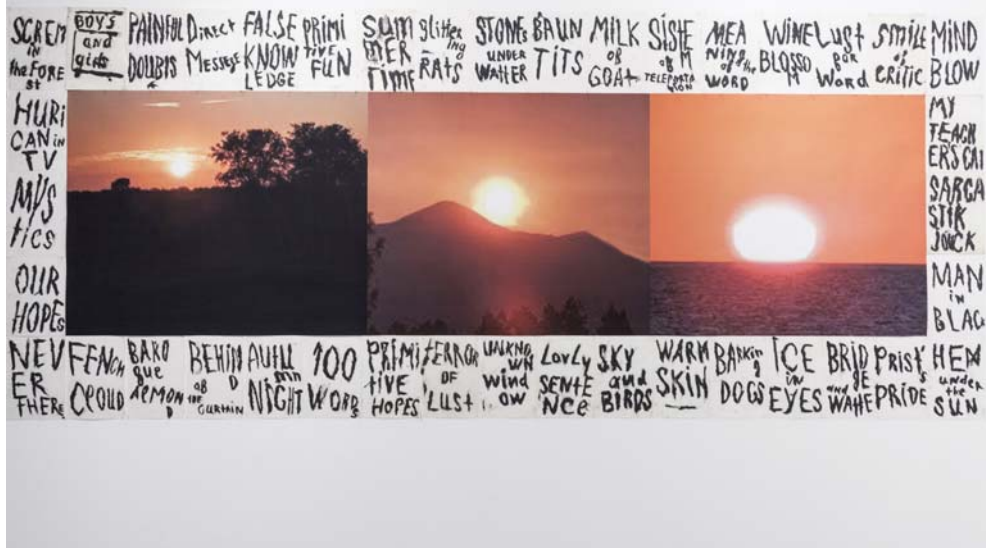 SCREM
IN
the FORE
st
BOYS
and
girls
PAINFUL
DOUBTS
Direct
Messege
FALSE
KNOW
LEDGE
PRIMI
TIVE
FUN
SUM
MER
TIME
glitter
ing
RATS
STONE
UNDER
WATTER
BAUN
TITS
MILK
of
GOAT
SISTE
M
of
TELEPORTA
TION
MEA
NING of the
WORD
WINE
BLOSSO
M
Lust
for
Word
SMILE
of
CRITIC
MIND
BLOW
HURI
CAN in
TV
MY
TEACH
ERS CAI
MYS
tics
SARCA
STIK
JOCK
OUR
HOPEs
MAN
in
BLAC
NEV
ER
THERE
FENCH
CLOUD
BARO
que
BEHIN
D
of
the
CURTAIN
NIGHT
100
WORDS
PRIMI
TIVE
HOPES
TERROR
OF
LUST
UNKNO
WN
wind
ow
LOVLY
SENTE
NCE
SKY
and
BIRDS
WARM
SKIN
BARKin
g
DOGS
ICE
in
EYES
BRID
GE
and
WATE
PRIST
s
PRIDE
HEM
under
the
SUN